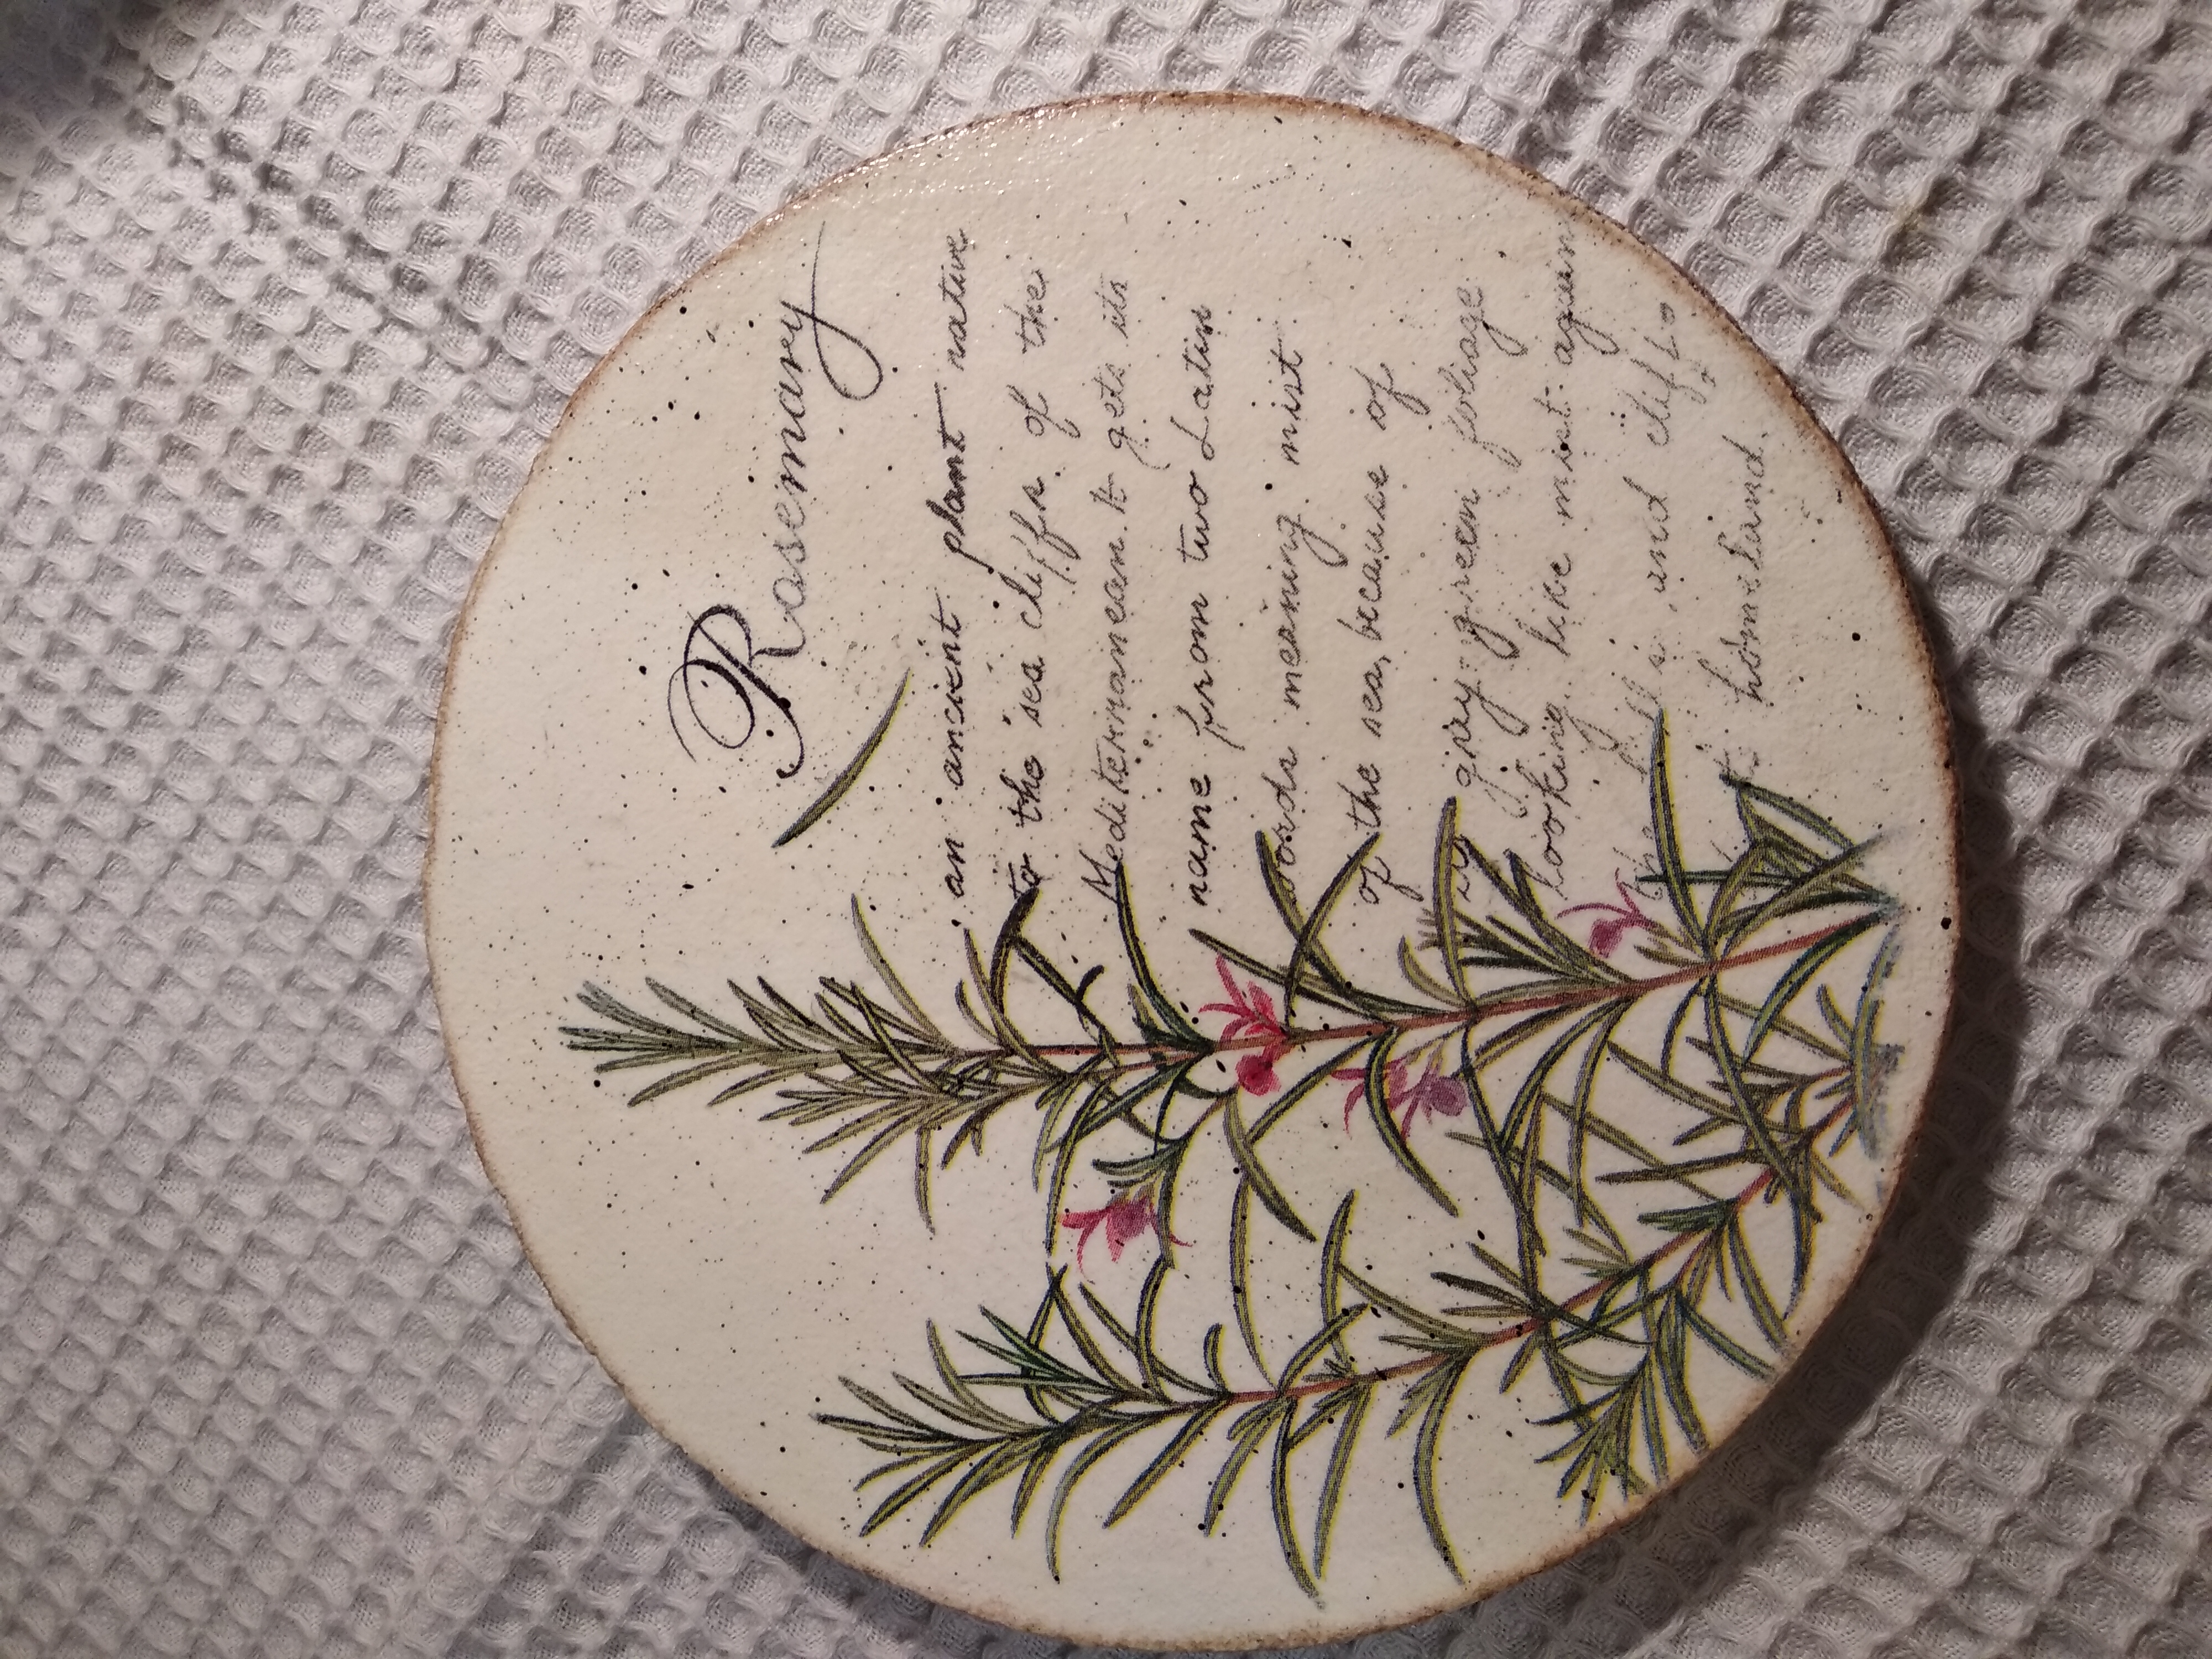 Rosemary
an ancient plant native
to the sea cliffs of the
Mediterranean. It gets its
name from two Latin
words meaning mist
of the sea, because of
its gray-green foliage
looking like mist again
the hills and cliffs
homeland.